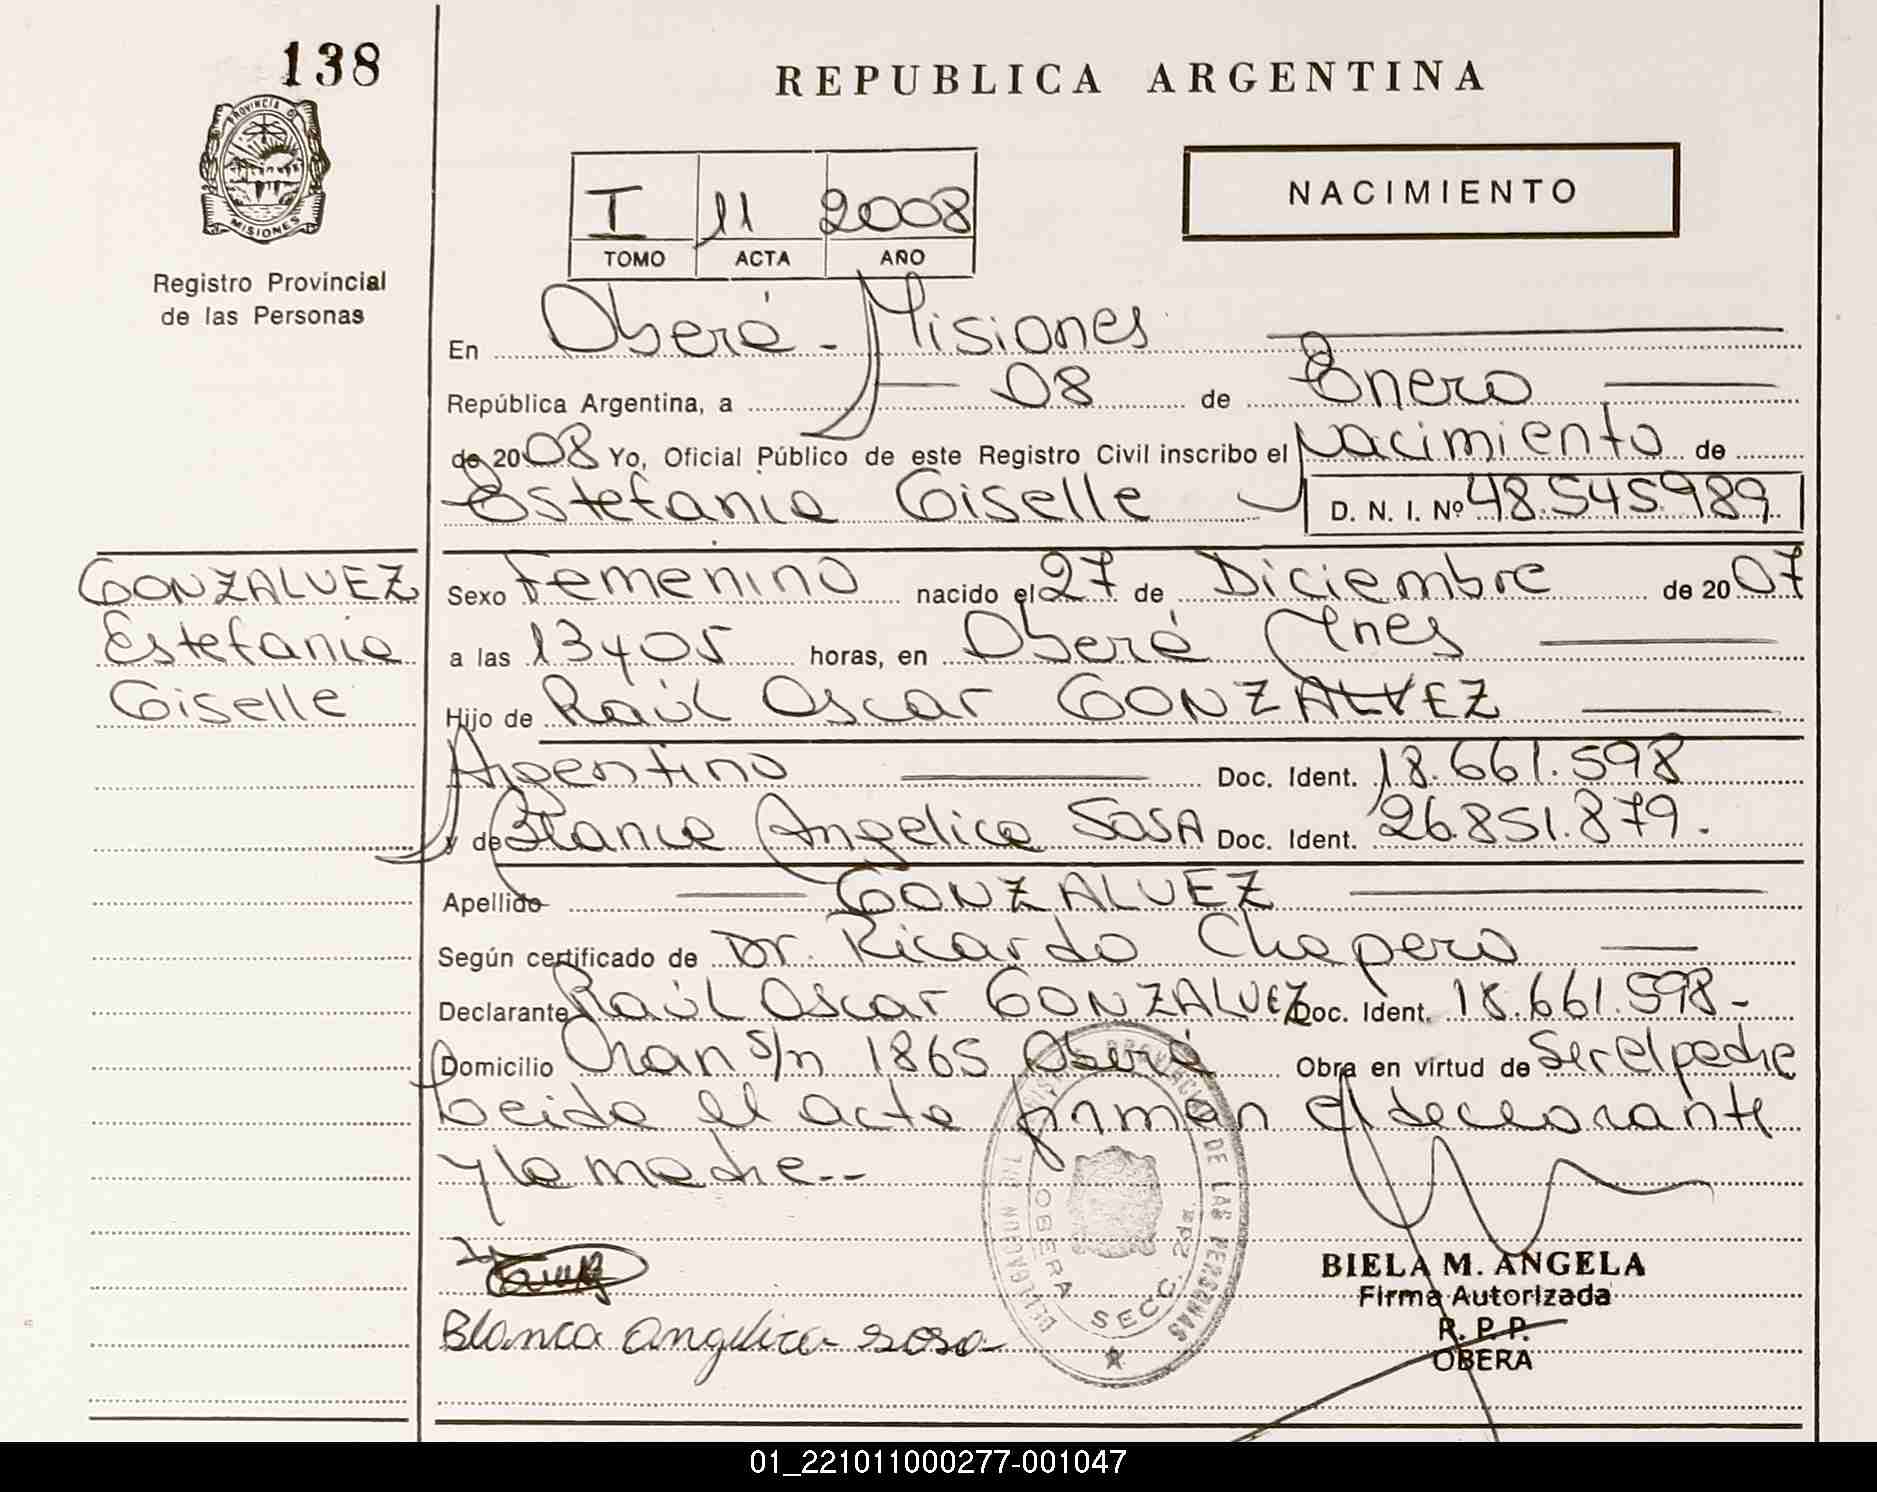 138
PROVINCIA DE
MISIONES
Registro Provincial
de las Personas
REPUBLICA ARGENTINA
NACIMIENTO
I 11 2008
TOMO ACTA AÑO
En Oberá - Misiones
República Argentina, a 08 de Enero
de 2008 Yo, Oficial Público de este Registro Civil inscribo el Nacimiento de
Estefania Giselle D. N. I. Nº 48.545.989
GONZALVEZ
Estefania
Giselle
Sexo Femenino nacido el 27 de Diciembre de 2007
a las 13 y 05 horas, en Oberá Mnes
Hijo de Raúl Oscar GONZALVEZ
Argentino Doc. Ident. 18.661.598
y de Blanca Angelica SOSA Doc. Ident. 26.851.879.
Apellido GONZALVEZ
Según certificado de Dr. Ricardo Chapero
Declarante Raúl Oscar GONZALVEZ Doc. Ident. 18.661.598-
Domicilio Oran s/n 1865 Oberá Obra en virtud de Ser el padre
Leida el acta firman el declarante
y la madre--
DELEGACION DEL REGISTRO PROVINCIAL DE LAS PERSONAS
OBERA SECC. 2da
BIELA M. ANGELA
Firma Autorizada
R. P. P.
OBERA
Blanca Angelica sosa
01_221011000277-001047